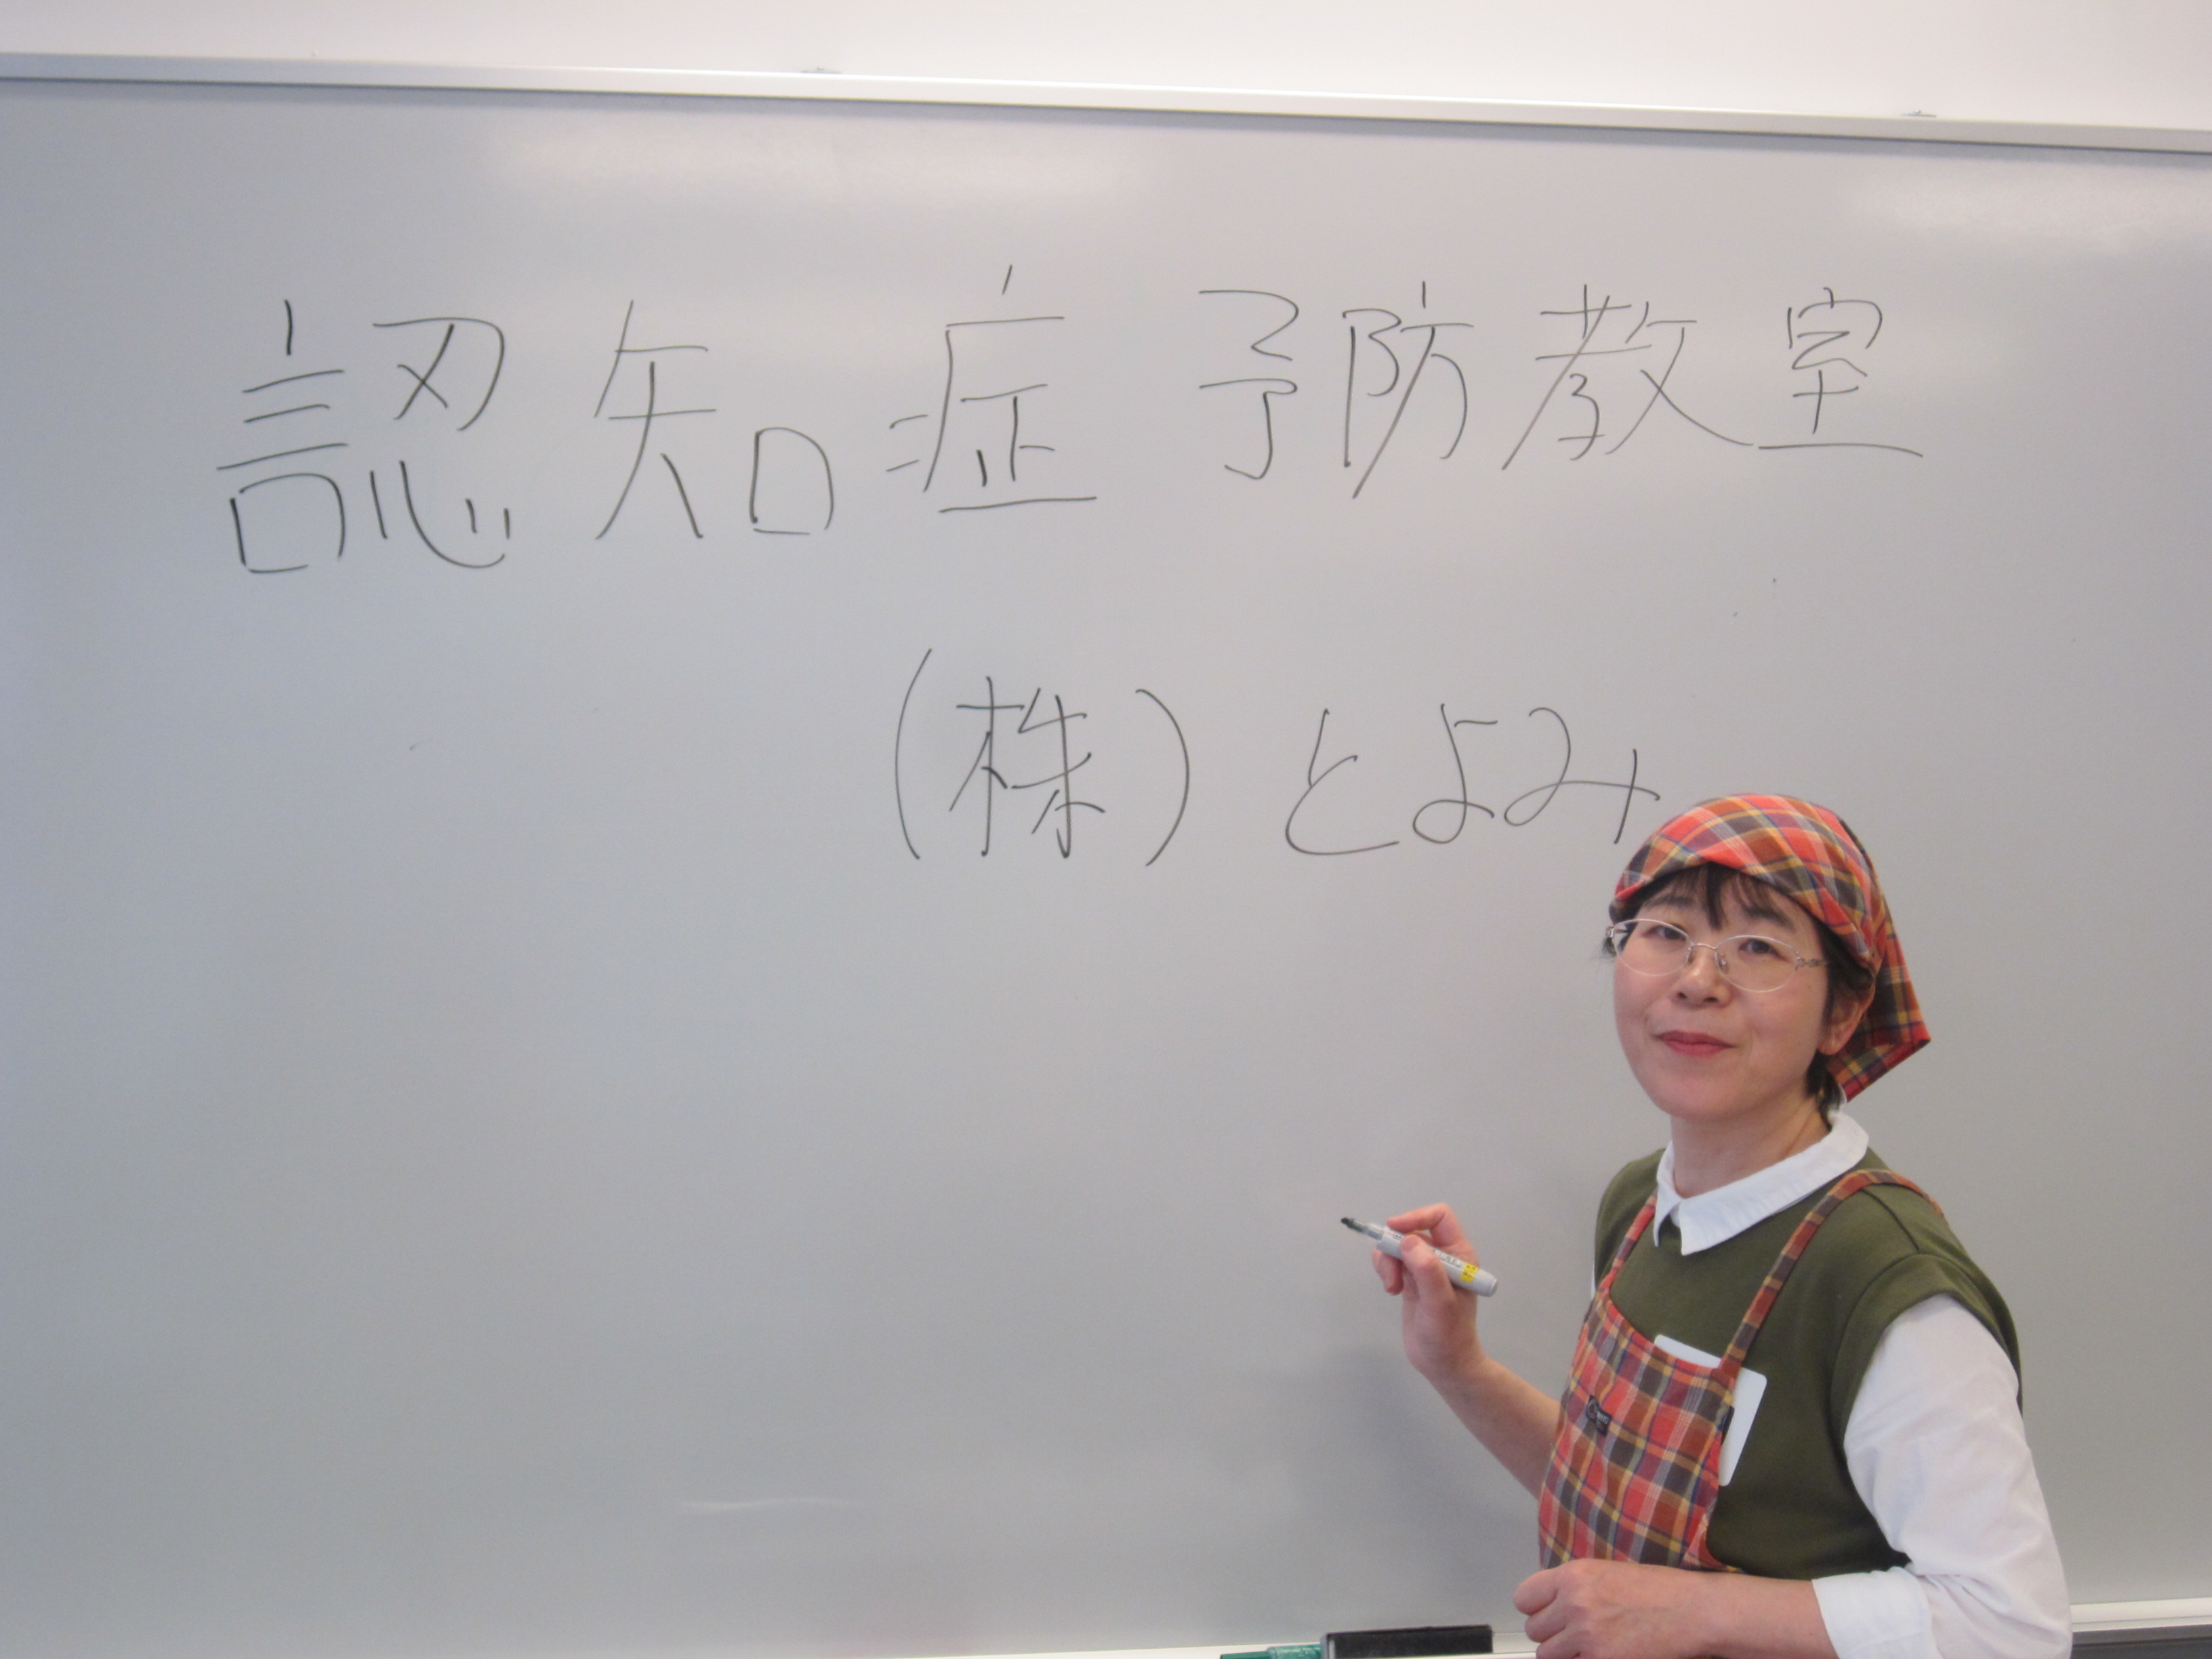 認知症予防教室
(株)とよみ